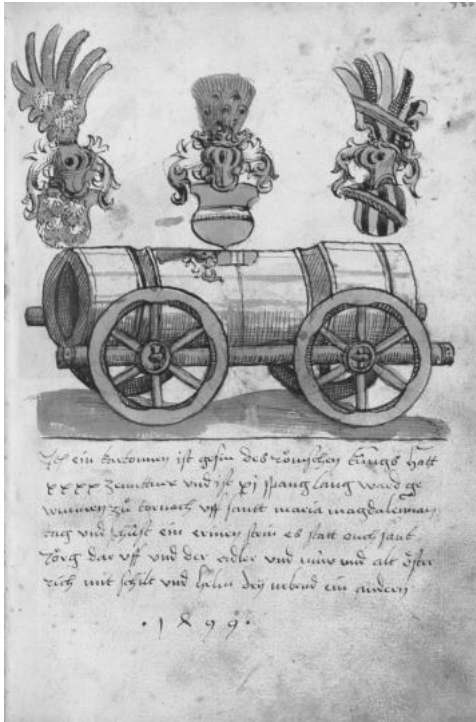 ein kartonnen ist gesin des römischen künigs hatt
xxxx zenttner und ist xj spang lang ward ge
wunnen zü tornach vff santt maria magdalennan
tag und schüst ein stein es statt ouch sant
Jörg dar vff und der adler und nüw und alt öster
rich mit schilt und helm nebend ein andern
· 1499 ·